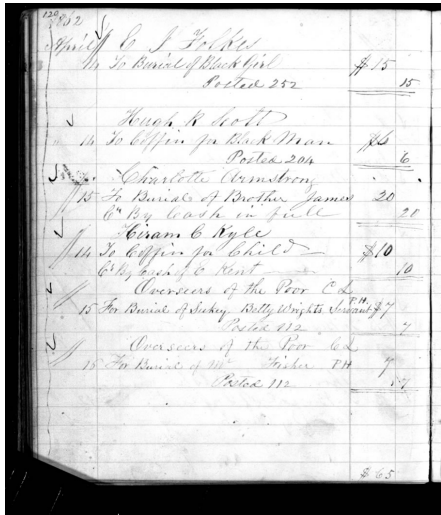 120
1862
April C J Folkes
14 To Burial of Black Girl $15
Posted 252 15
Hugh R Scott
14 To Coffin for Black Man $6
Posted 204 6
Charlotte Armstrong
15 To Burial of Brother James 20
Cr By Cash in full 20
Hiram C Kyle
14 To Coffin for Child $10
Cr By Cash of C Kent 10
Overseers of the Poor C L
15 For Burial of Betty Wrights Servant P.H. $7
Posted 112 7
Overseers of the Poor C L
15 For Burial of Mr Fisher P H 7
Posted 112 7
$65